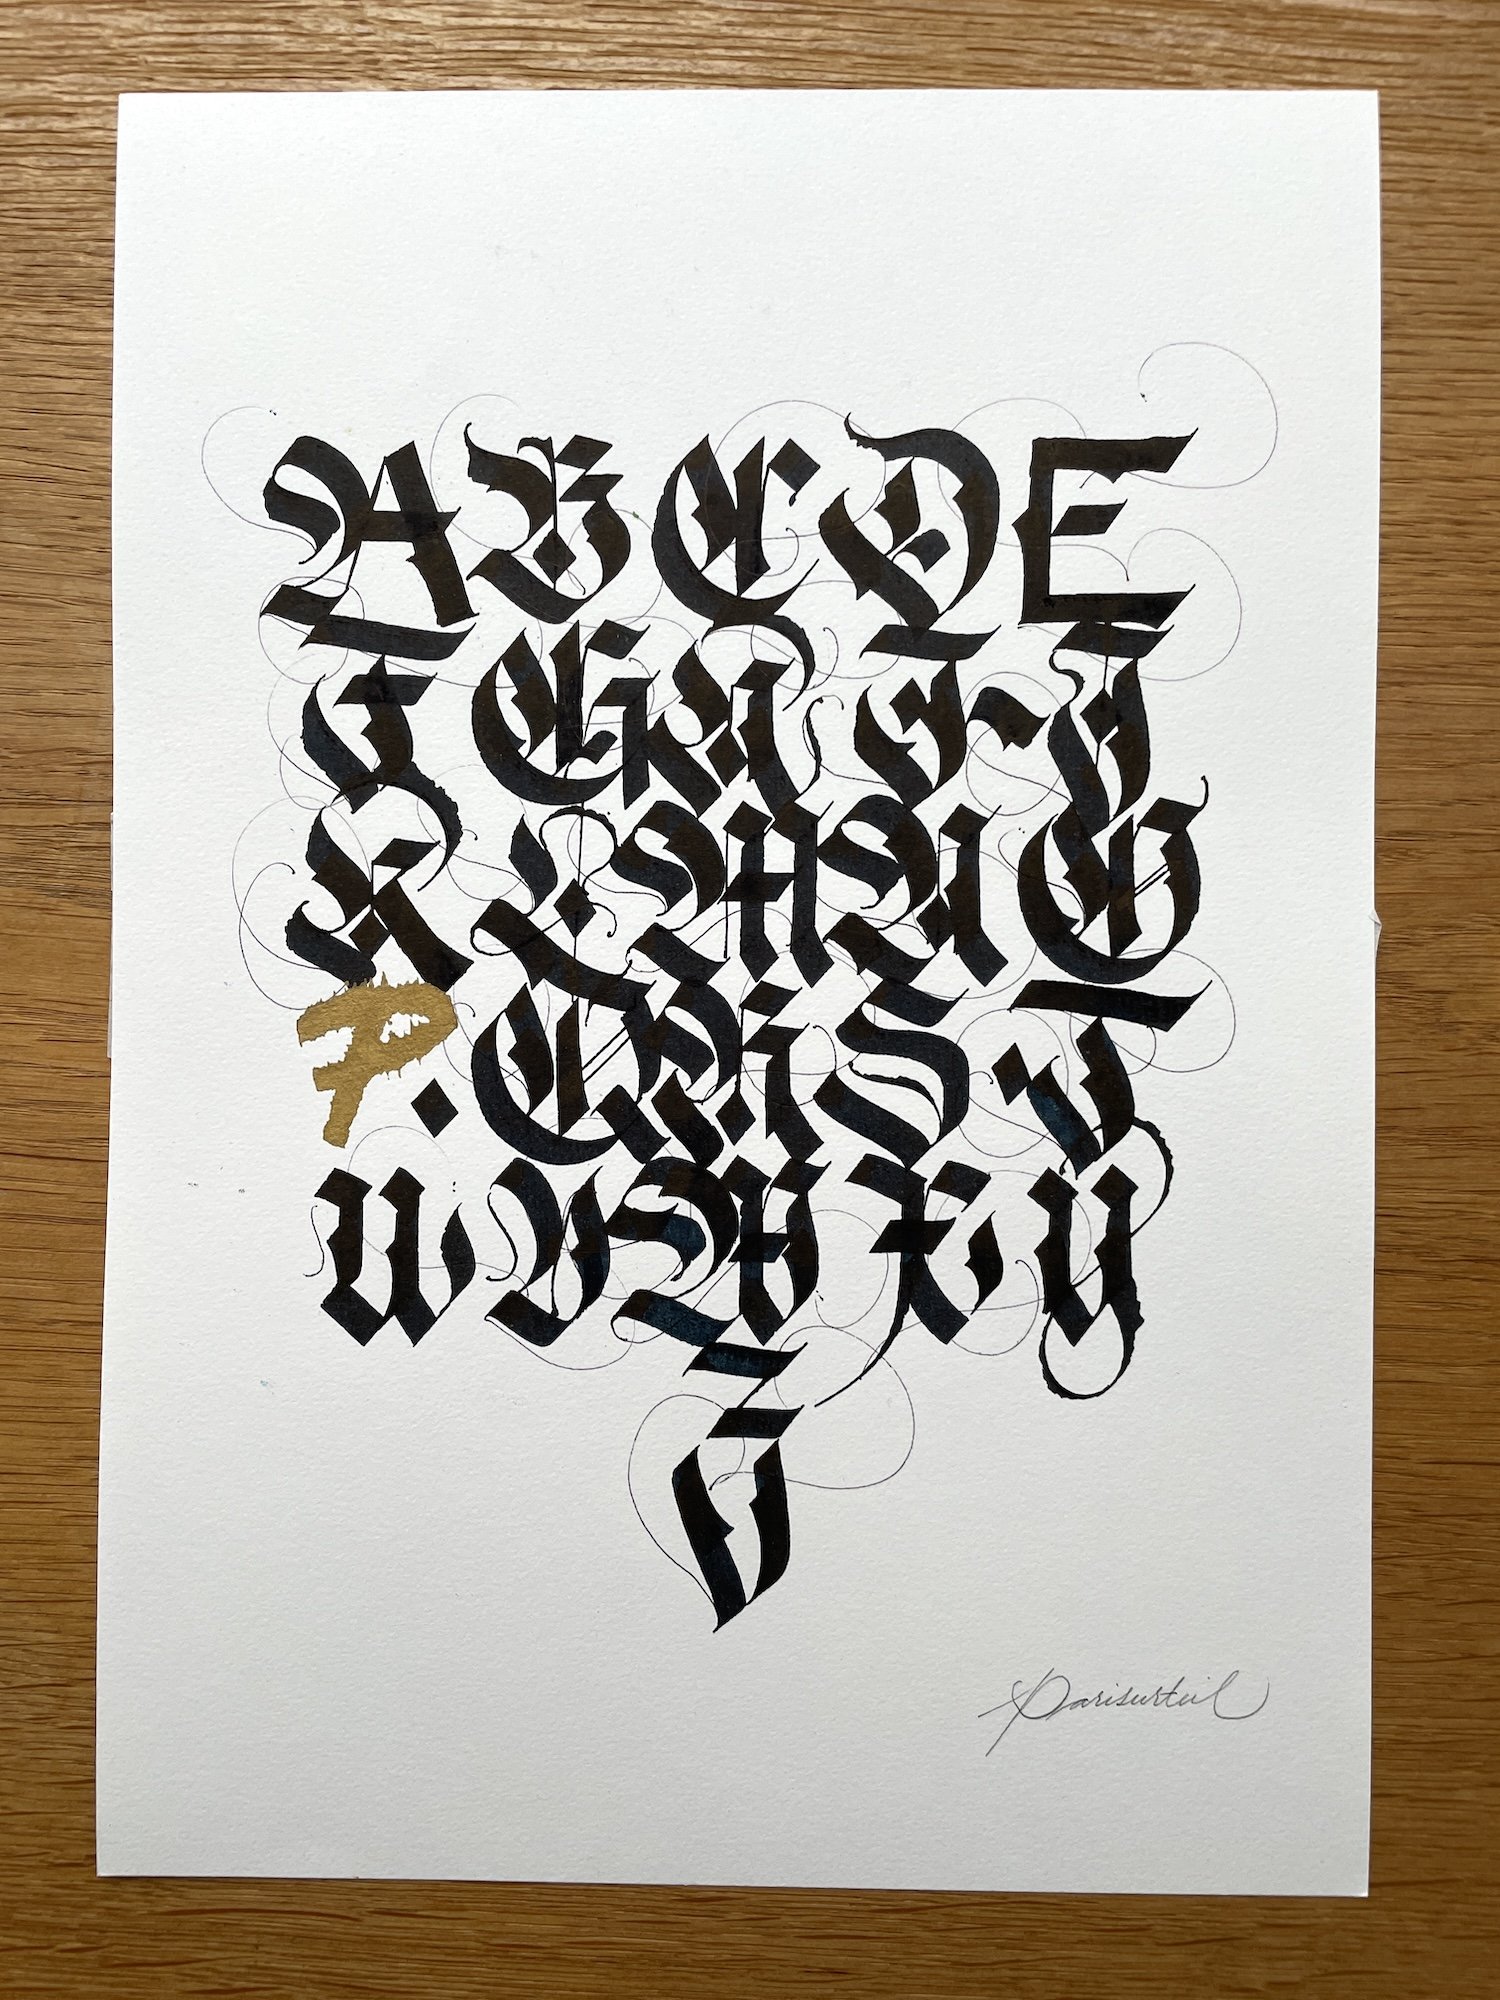 A B C D E
F G H I J
K L M N O
P Q R S T
U V W X Y
Z
Parisurteil